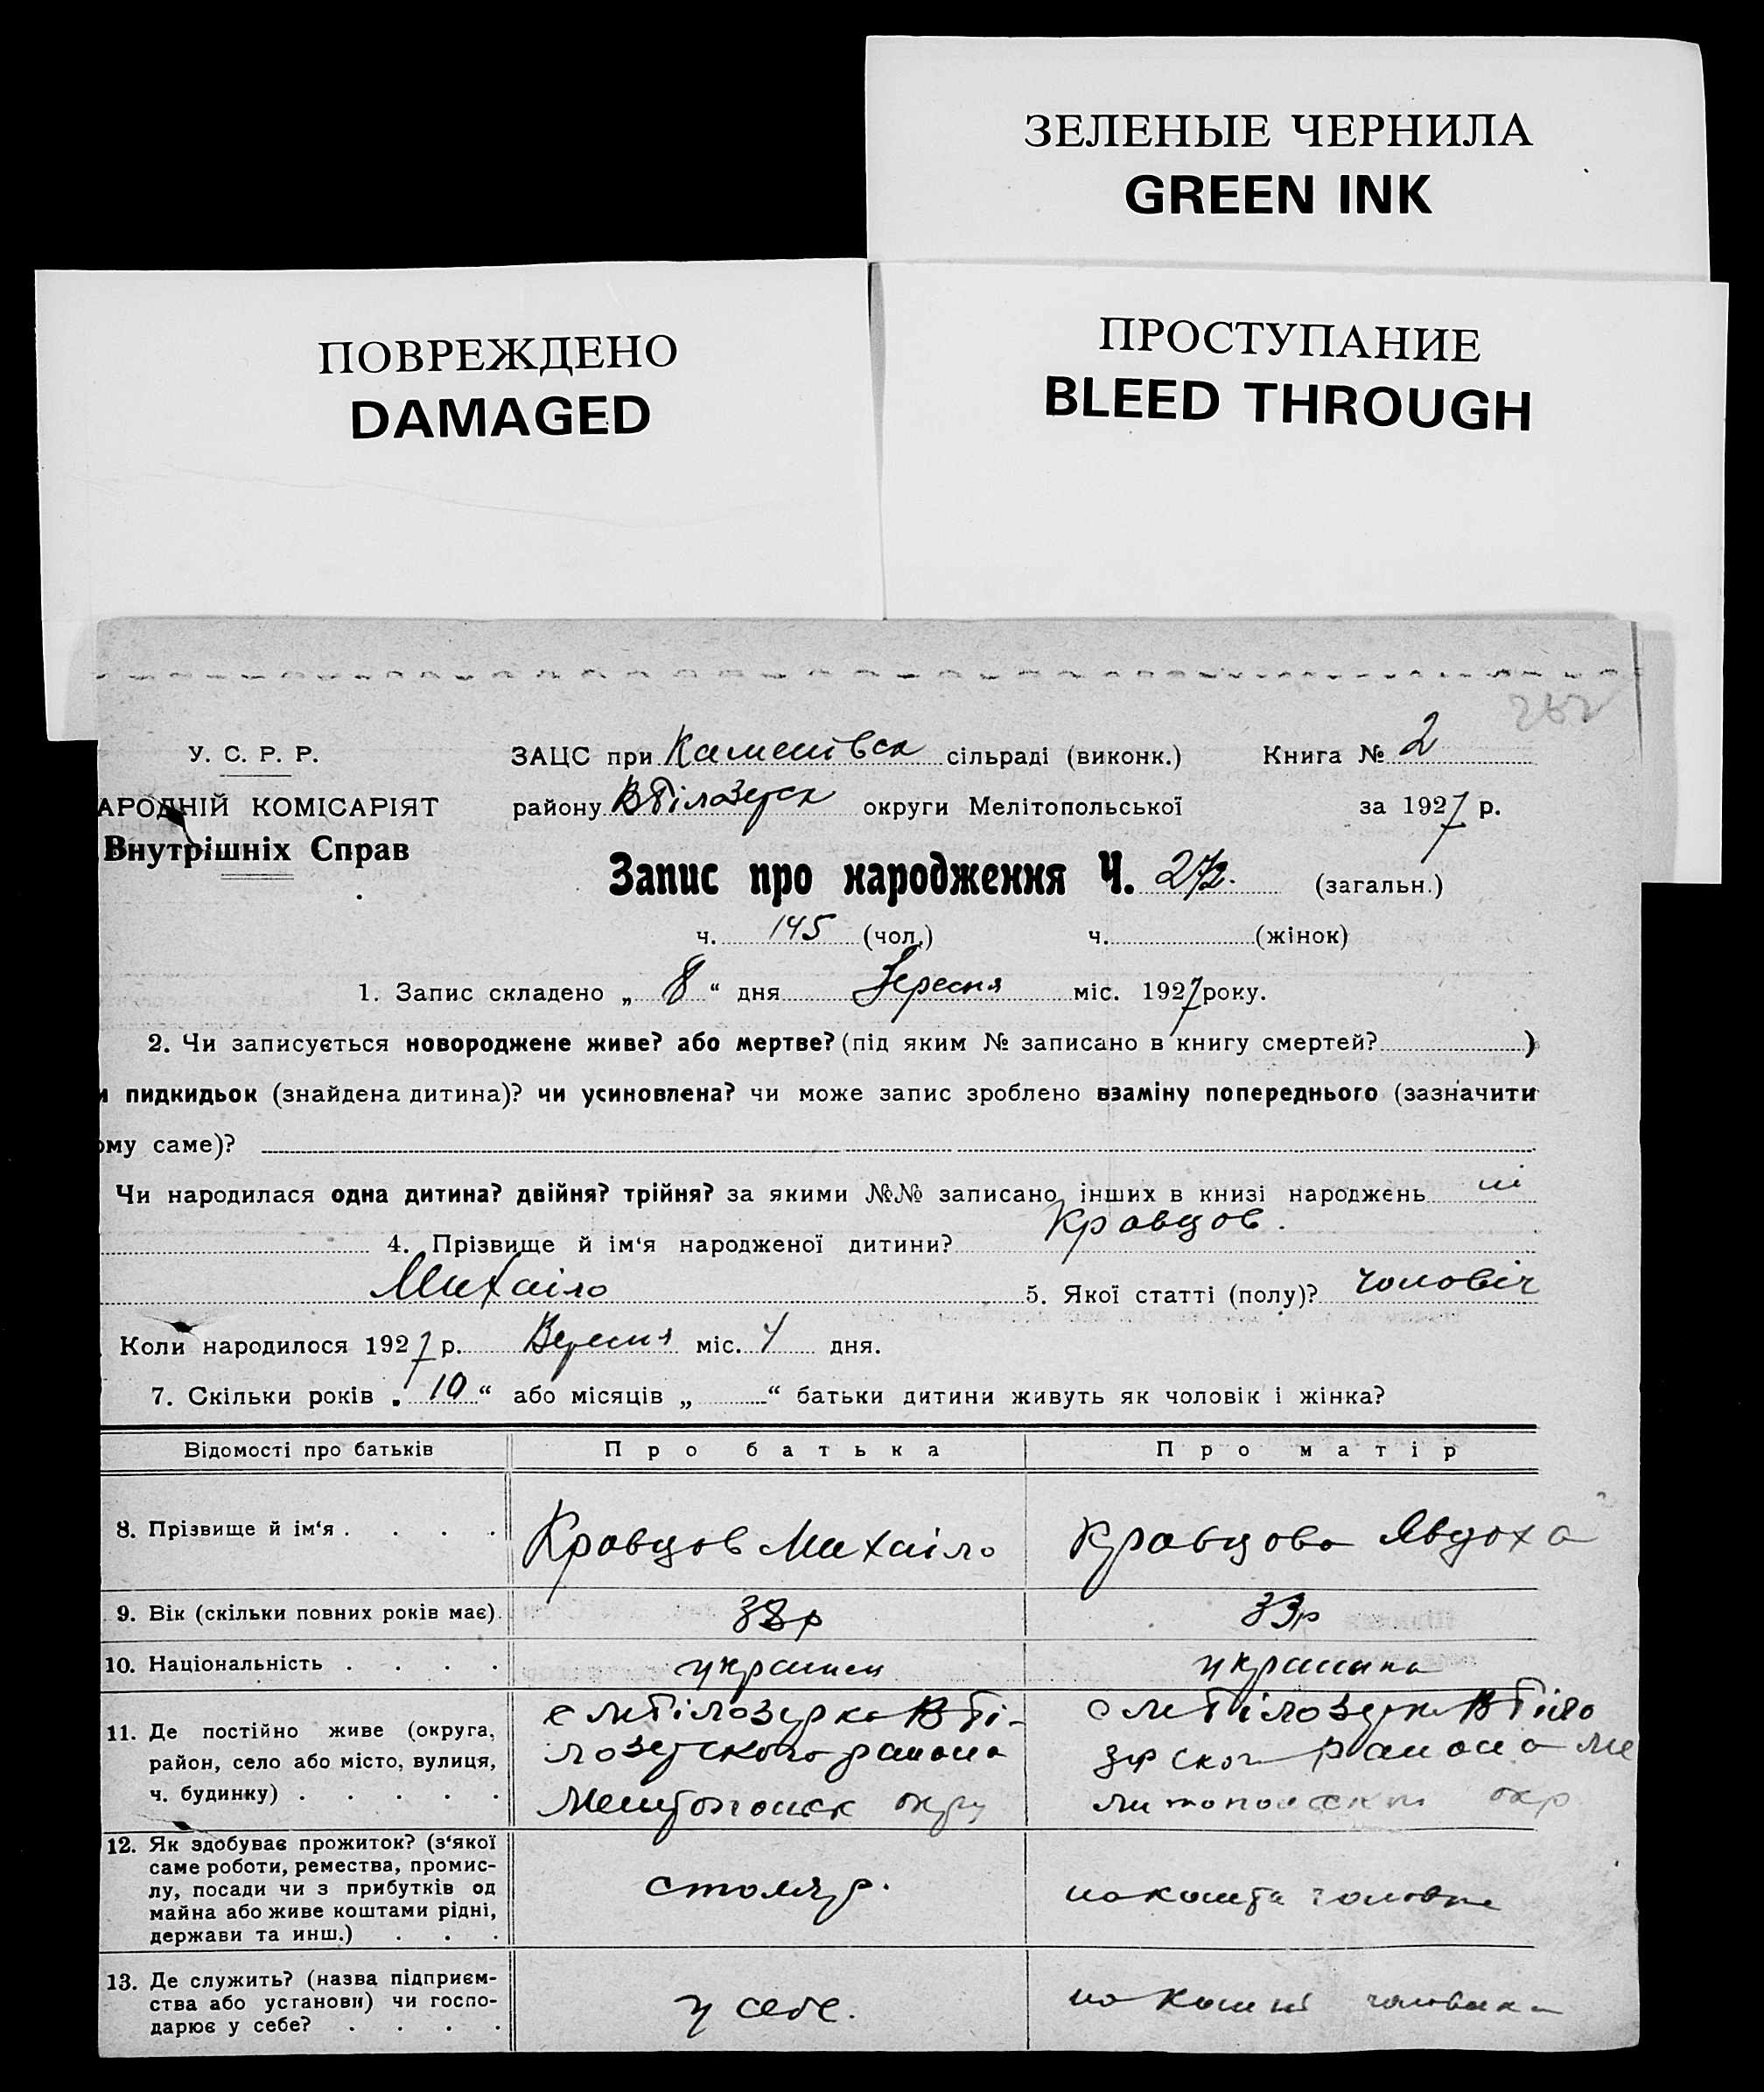 ЗЕЛЕНЫЕ ЧЕРНИЛА
GREEN INK
ПОВРЕЖДЕНО
DAMAGED
ПРОСТУПАНИЕ
BLEED THROUGH
У. С. Р. Р.
АРОДНІЙ КОМІСАРІЯТ
Внутрішніх Справ
ЗАЦС при сільраді (виконк.) Книга № 2
району округи Мелітопольської за 1927 р.
Запис про народження Ч. 272. (загальн.)
ч. 145 (чол.) ч. (жінок)
1. Запис складено „ 8 “ дня міс. 1927 року.
2. Чи записується новороджене живе? або мертве? (під яким № записано в книгу смертей? )
и пидкидьок (знайдена дитина)? чи усиновлена? чи може запис зроблено взаміну попереднього (зазначити
ому саме)?
Чи народилася одна дитина? двійня? трійня? за якими №№ записано інших в книзі народжень
4. Прізвище й ім‘я народженої дитини? Кравцов.
Михаіло 5. Якої статті (полу)? чоловіч
Коли народилося 1927 р. Вересня міс. дня.
7. Скільки років „ 10 “ або місяців „ “ батьки дитини живуть як чоловік і жінка?
Відомості про батьків Про батька Про матір
8. Прізвище й ім‘я . . . . Кравцов Михаіло Кравцова Явдоха
9. Вік (скільки повних років має). 33р
10. Національність . . . . украинец украинка
11. Де постійно живе (округа,
район, село або місто, вулиця,
ч. будинку) . . . . .
12. Як здобуває прожиток? (з‘якої
саме роботи, ремества, промис-
лу, посади чи з прибутків од
майна або живе коштами рідні,
держави та инш.) . . .
столяр.
13. Де служить? (назва підприєм-
ства або установи) чи госпо-
дарює у себе? . . . .
у себе.